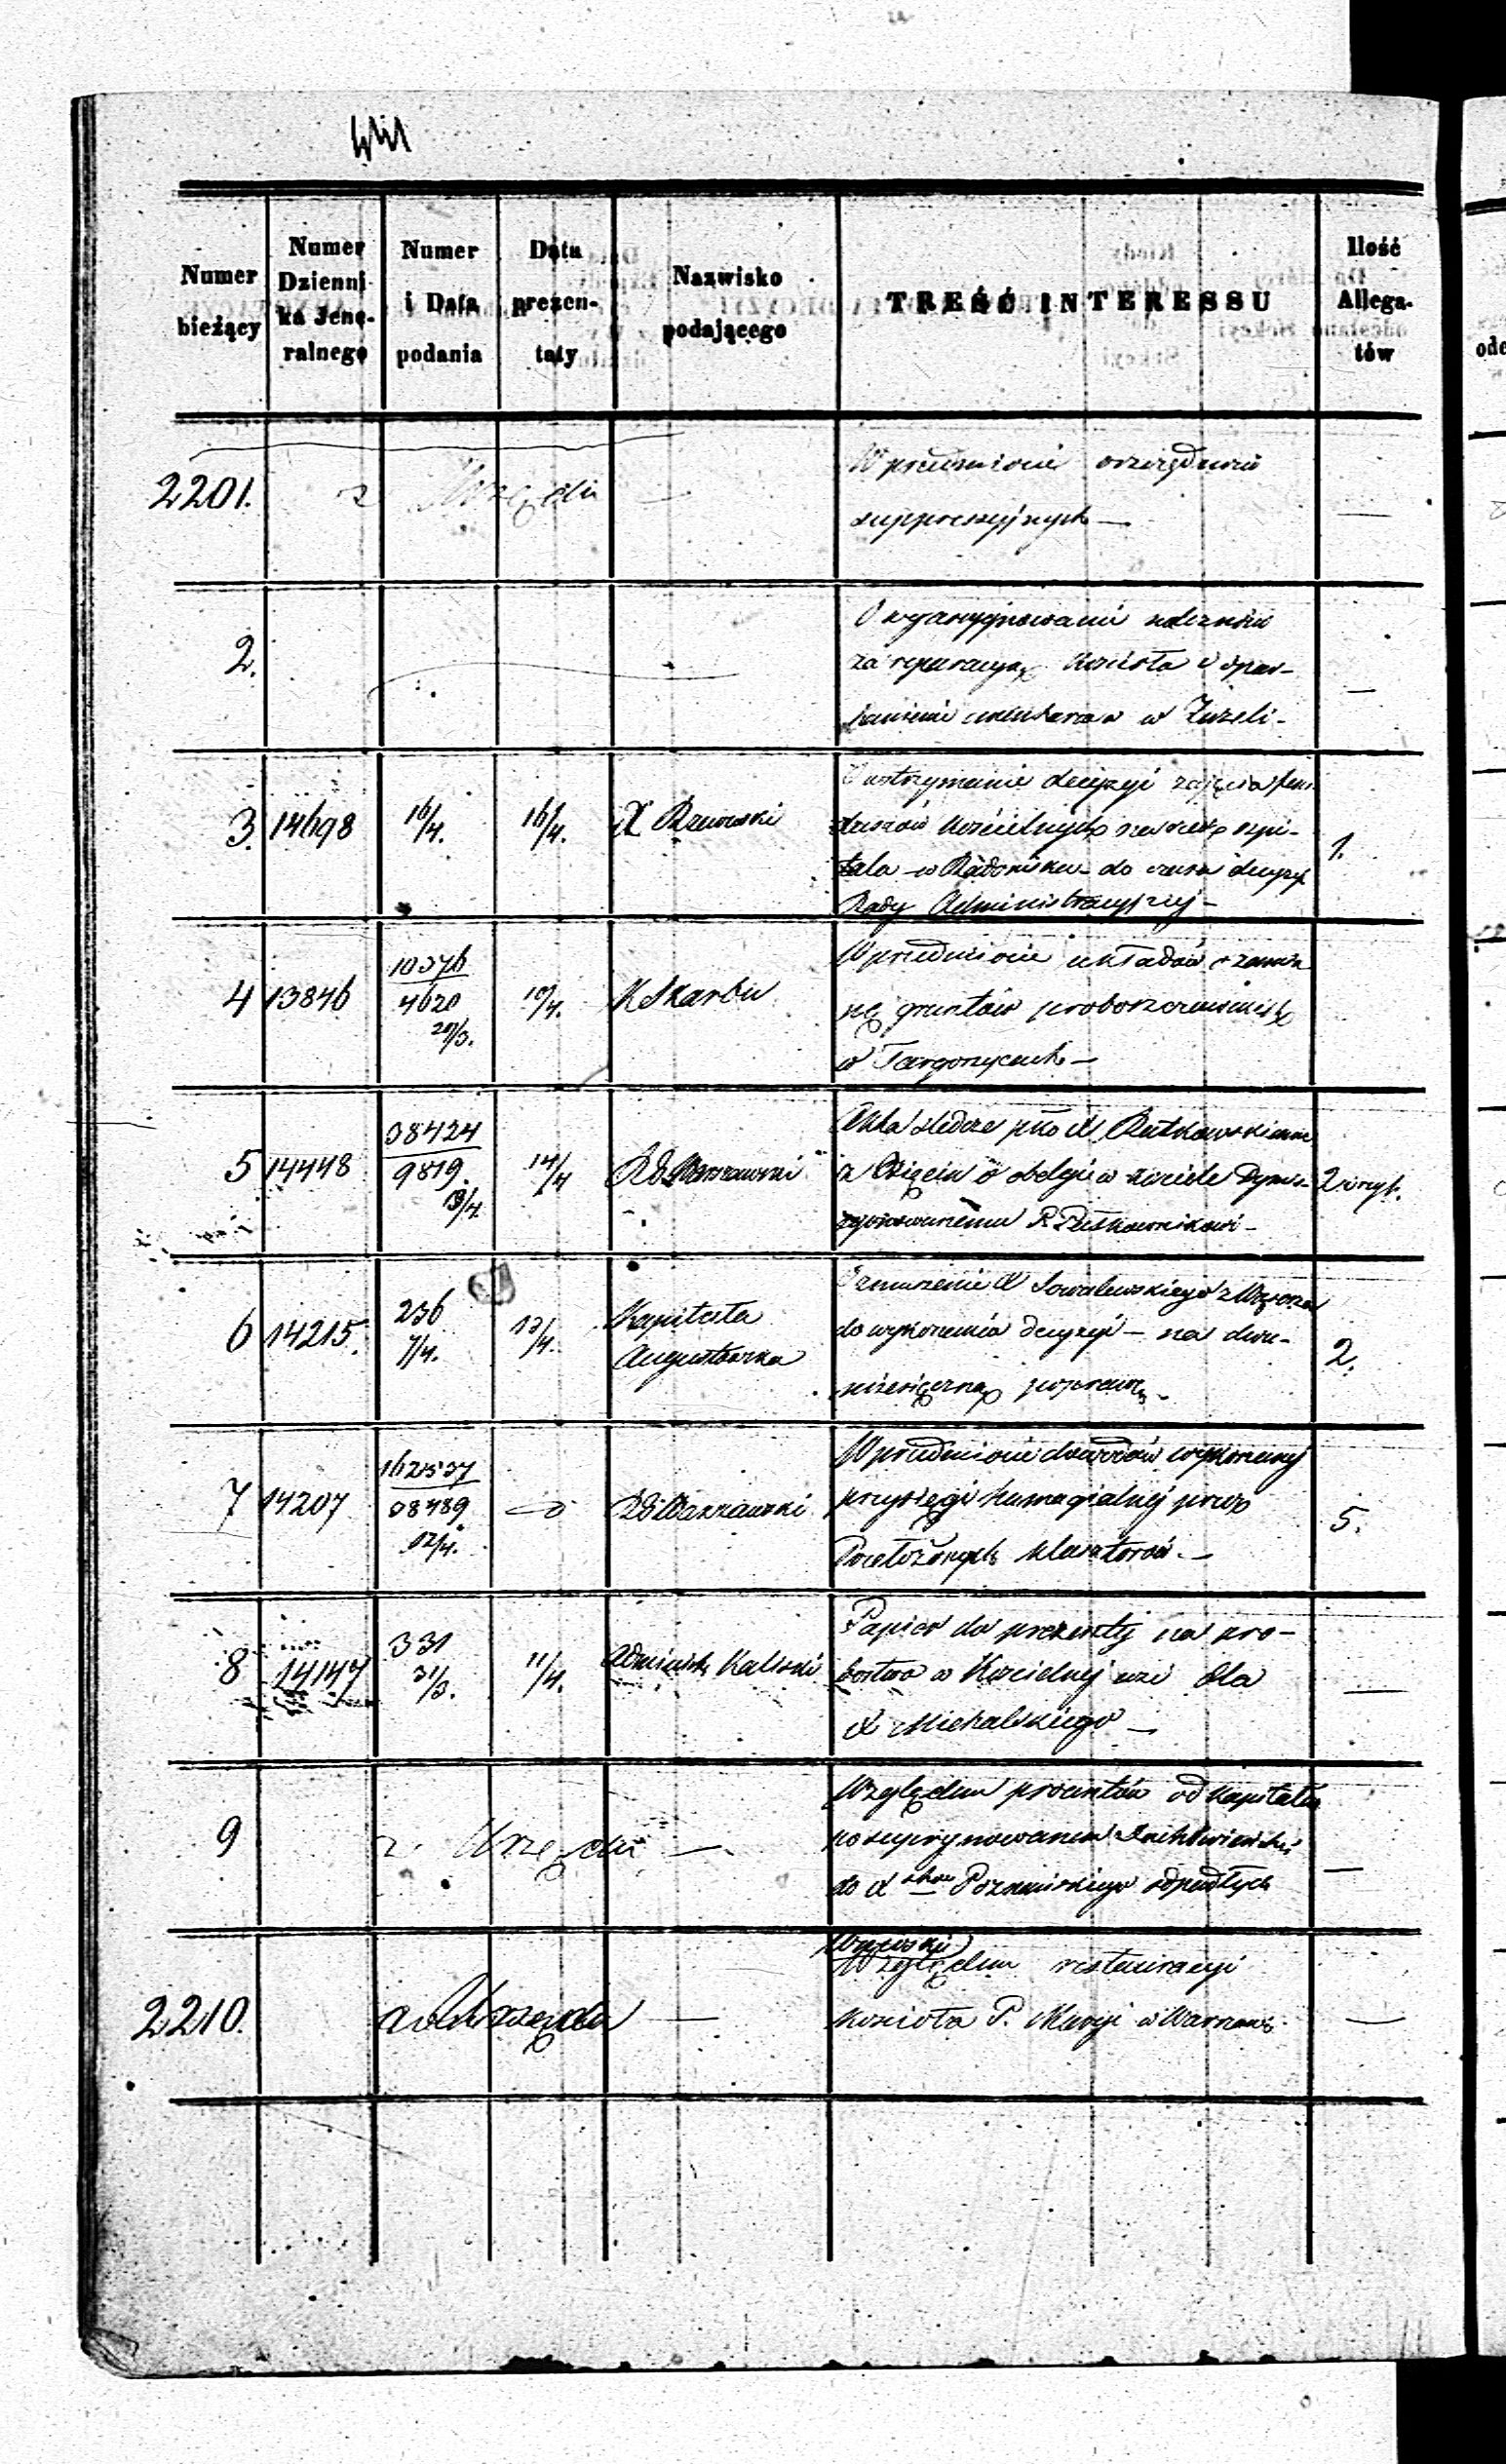 Numer bieżący
Numer Dziennika Jeneralnego
Numer i Data podania
Data prezentaty
Nazwisko podającego
TREŚĆ INTERESSU
Ilość Allegatów
2201. z Urzędu —
W przedmiocie
suppressyjnych —
2.
O wyassygnowanie
za reparacyą Kościoła i
w Zuzeli -
3. 14698 16/4. 16/4. X
O wstrzymanie decyzyi zajęcia fun-
duszów Kościelnych na rzecz szpi-
tala w Radomsku do czasu decyzyi
Rady Administracyjnej — 1.
4 13846 10376 4620 20/3. 10/4. K Skarbu
W przedmiocie układów o zamia-
nę gruntów proboszczowskich
w Targoszycach —
5 14448 38424 9819. 13/4 14/4 R G Warszawski
Akta śledcze pko X Rutkowskiemu
z o obelgi w kościele Dymis-
syonowanemu P. Pułkownikowi — 2
6 14215. 236 7/4. 13/4. Kapituła
Augustowska
X Sowalewskiego z Wąsosza
do wykonania decyzyi — na dwu-
miesięczną poprawę — 2.
7 14207 162537 38489 12/4. R G Warszawski
W przedmiocie dowodów wykonanej
przysięgi homagialnej przez
Przełożonych klasztorów. — 5.
8 14147 331 31/3. 11/4. Administr Kaliski
Papier do prezenty na pro-
bostwo w Kościelnej wsi dla
X Michalskiego —
9 z Urzędu —
Względem procentów od kapitału
po
do X Poznańskiego odpadłych —
2210. z Urzędu —
Względem restauracyi
Kościoła P. Maryi w Warszawie —